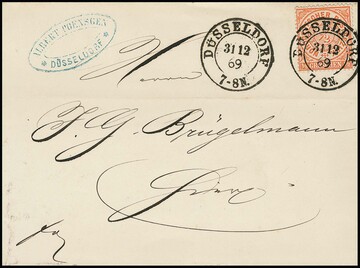 ALBERT POENSGEN
* DÜSSELDORF *
DÜSSELDORF
31 12
69
7-8N.
DÜSSELDORF
31 12
69
7-8N.
Herrn
F. G. Brügelmann
hier